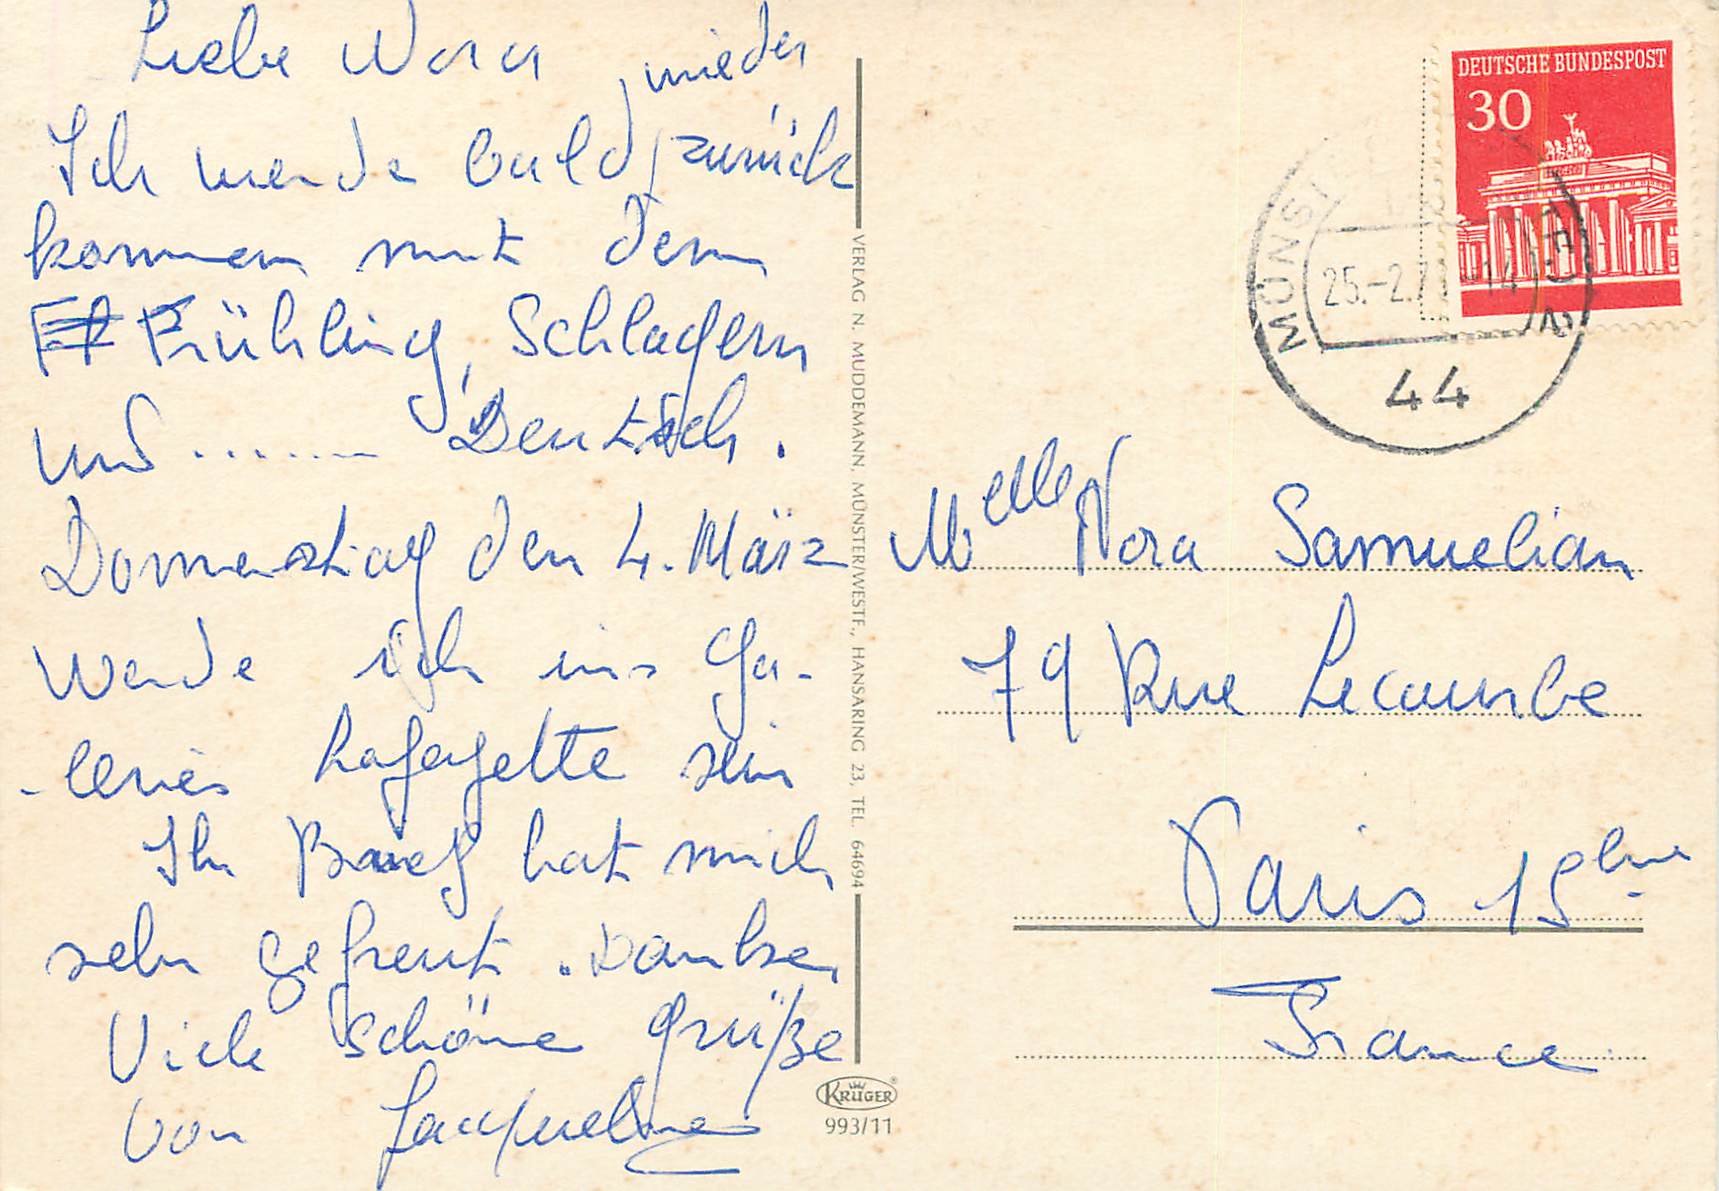 Liebe Nora
wieder
Ich werde bald, zurück
kommen mit dem
Frühling, Schlagern
und ....... Deutsch.
Donnerstag den 4. März
werde ich ins Ga-
-leries Lafayette sein
Ihr Brief hat mich
sehr gefreut. Danke
Viele schöne Grüße
von Jacqueline
VERLAG N. MUDDEMANN, MÜNSTER/WESTF., HANSARING 23, TEL. 64694
KRÜGER
993/11
DEUTSCHE BUNDESPOST
30
25.-2.7
-14
44
Melle Nora Samuelian
79 Rue Lecourbe
Paris 15ème
France